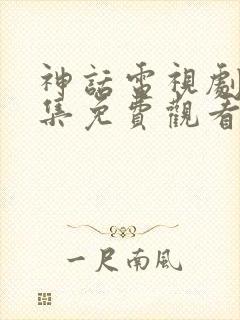 神話電視劇
集免費觀看
一尺南風